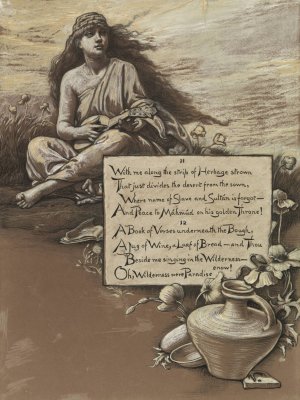 11
With me along the strip of Herbage strown
That just divides the desert from the sown,
Where name of Slave and Sultan is forgot—
And Peace to Máhmúd on his golden Throne!
12
A Book of Verses underneath the Bough,
A Jug of Wine, a Loaf of Bread—and Thou
Beside me singing in the Wilderness—
Oh, Wilderness were Paradise enow!